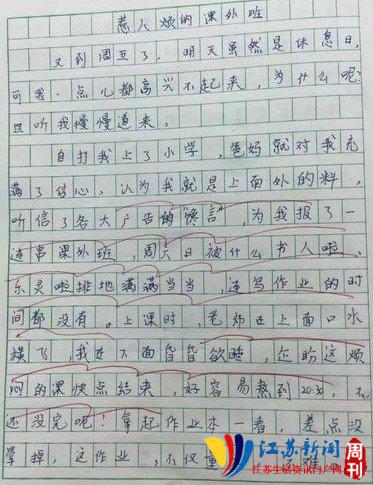 惹人烦的课外班
又到周五了，明天虽然是休息日，
可我一点儿都高兴不起来，为什么呢？
且听我慢慢道来。
自打我上了小学，爸妈就对我充
满了信心，认为我就是上面外的料，
听信了各大广告的“馋言”，为我报了一
连串课外班，周六日被什么书人啦、
东灵啦排地满满当当，连写作业的时
间都没有。上课时，老师在上面口水
横飞，我在下面昏昏欲睡，企盼这烦
闷的课快点结束，好容易熬到20:30，
还没完呢！拿起作业本一看，差点没
晕掉，这作业，不仅量
江苏新闻周刊
江苏生活资讯门户网